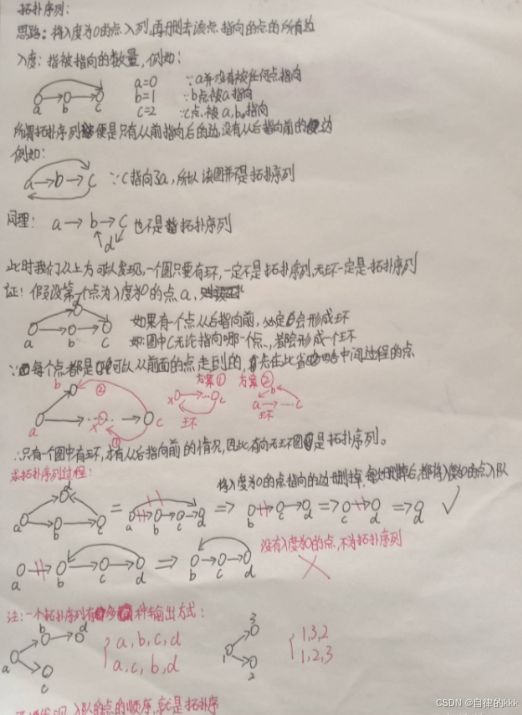 拓扑序列:
思路:将入度为0的点入列,再删去该点指向的点的所有边
入度:指被指向的数量,例如:
a=0 ∵a并没有被任何点指向
b=1 ∵b点被a指向
c=2 ∵c点被a,b指向
a b c
所谓拓扑序列便是只有从前指向后的边,没有从后指向前的边
例如:
a→b→c ∵c指向了a,所以该图并不是拓扑序列
同理: a→b→c 也不是拓扑序列
d
此时我们从上方可以发现,一个图只要有环,一定不是拓扑序列,无环一定是拓扑序列
证:假设第一个点为入度为0的点a,
如果有一个点从后指向前,必定会形成环
如图中c无论指向哪一个点,都会形成一个环
a b c
∵每个点都是可以从前面的点走到的,在此省略中间过程的点
方案① 方案②
b ② x c b
a x ① c 环 a→…c
环
∴只有一个图中有环,才有从后指向前的情况,因此有向无环图是拓扑序列。
求拓扑序列过程:
将入度为0的点指向的边删掉,每次删掉后,都将入度0的点入队
a b c = a b c d ⇒ b c d ⇒ c d ⇒ d ✓
a b c d ⇒ b c d 没有入度为0的点,不存在拓扑序列
×
注:一个拓扑序列有多种输出方式:
a b d c { a,b,c,d
a,c,b,d
1 3 2 { 1,3,2
1,2,3
入队的点的顺序,就是拓扑序
CSDN @自律的kkk